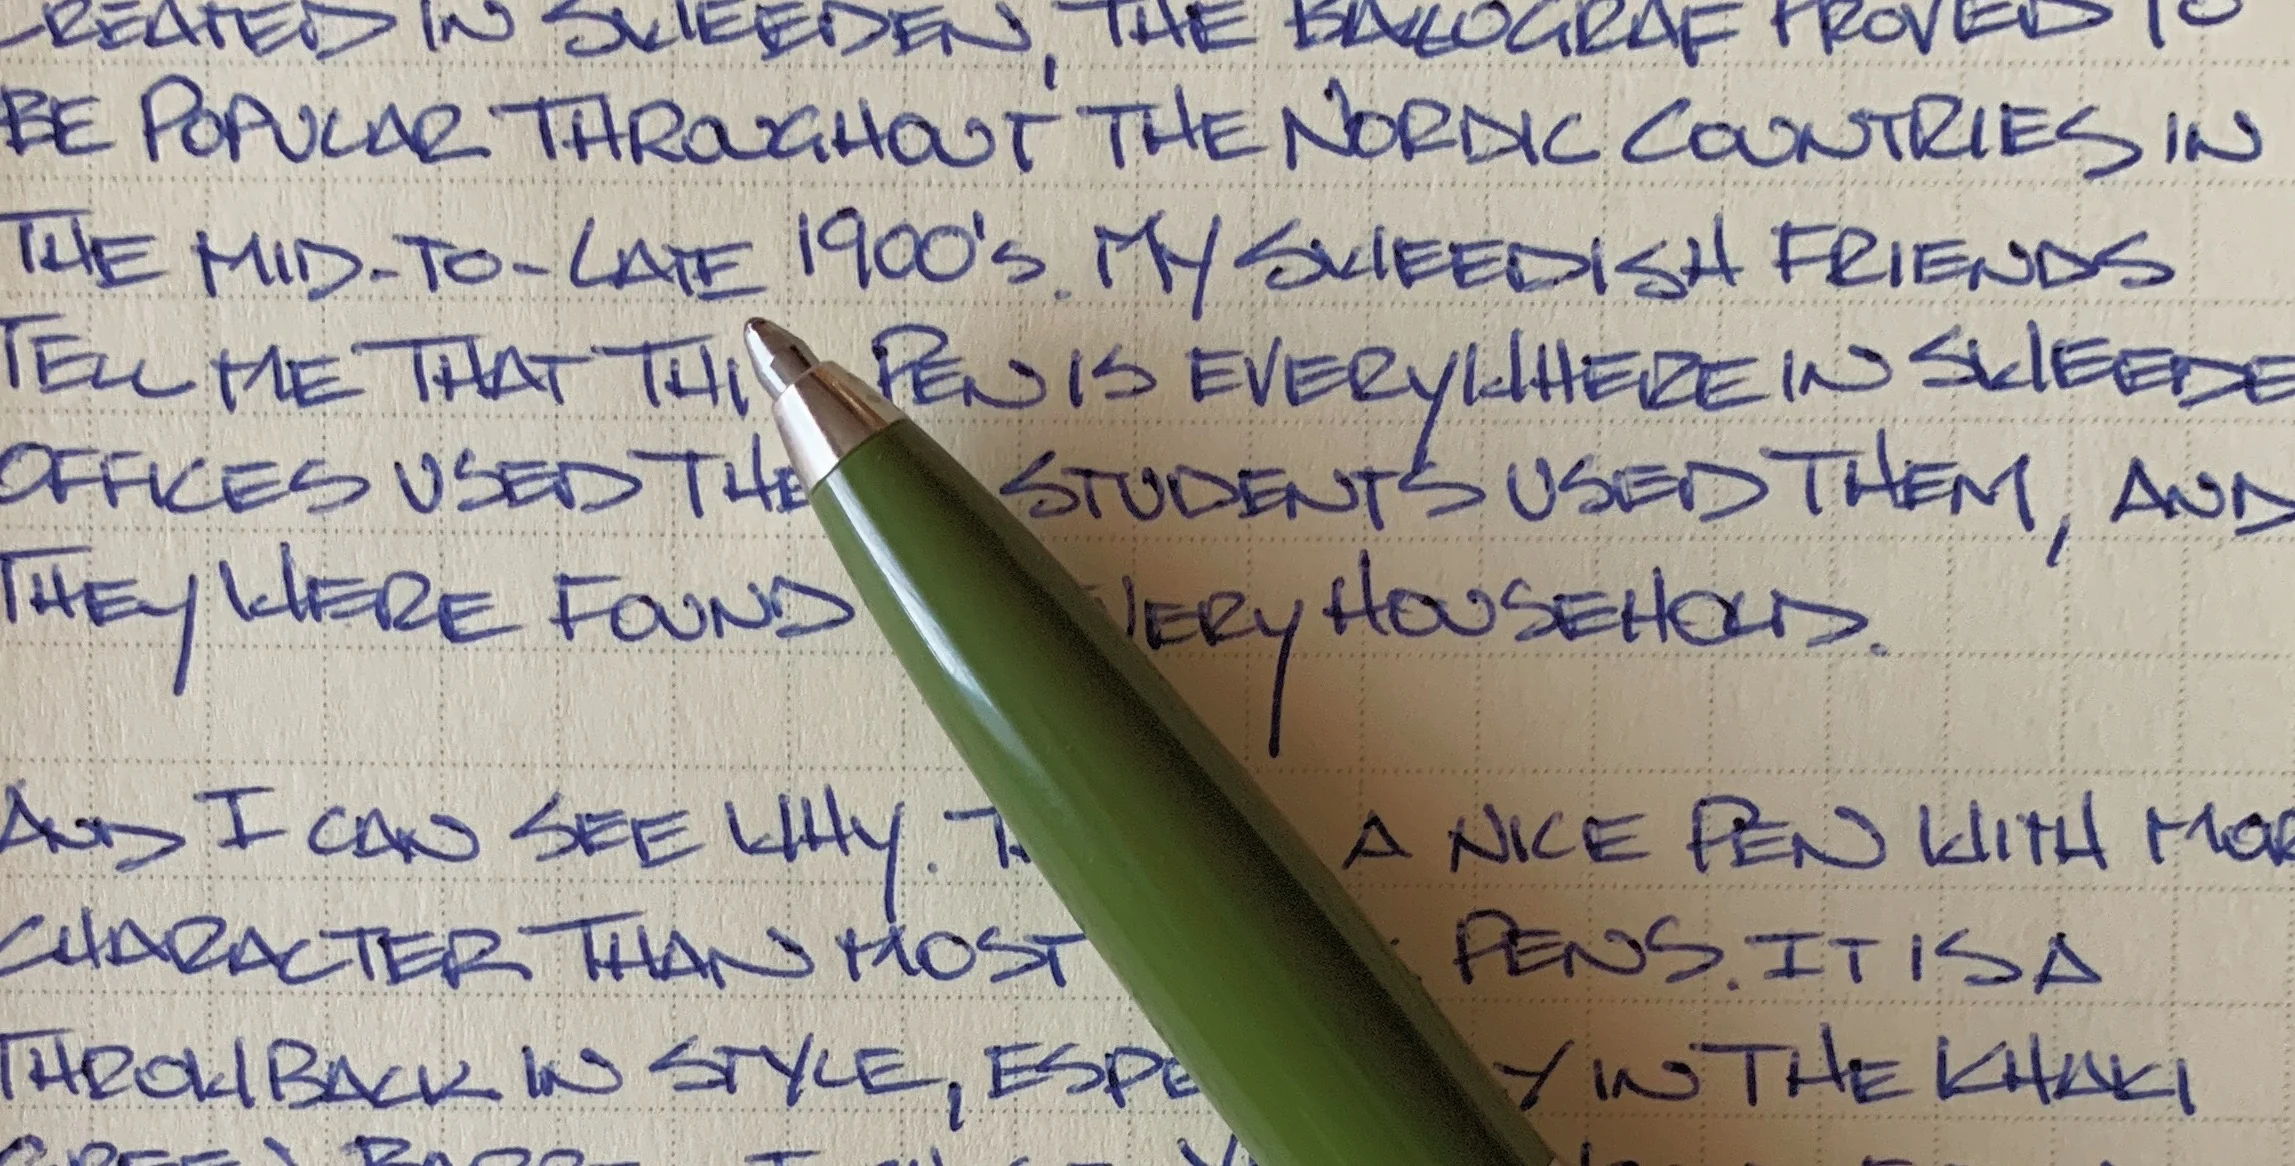 CREATED IN SWEEDEN, THE BALLOGRAF PROVED TO
BE POPULAR THROUGHOUT THE NORDIC COUNTRIES IN
THE MID-TO-LATE 1900's. MY SWEEDISH FRIENDS
TELL ME THAT THI PEN IS EVERYWHERE IN SWEEDE
OFFICES USED THE STUDENTS USED THEM, AND
THEY WERE FOUND VERY HOUSEHOLD.
AND I CAN SEE WHY. A NICE PEN WITH MOR
CHARACTER THAN MOST PENS. IT IS A
THROWBACK IN STYLE, ESPE Y IN THE KHAKI